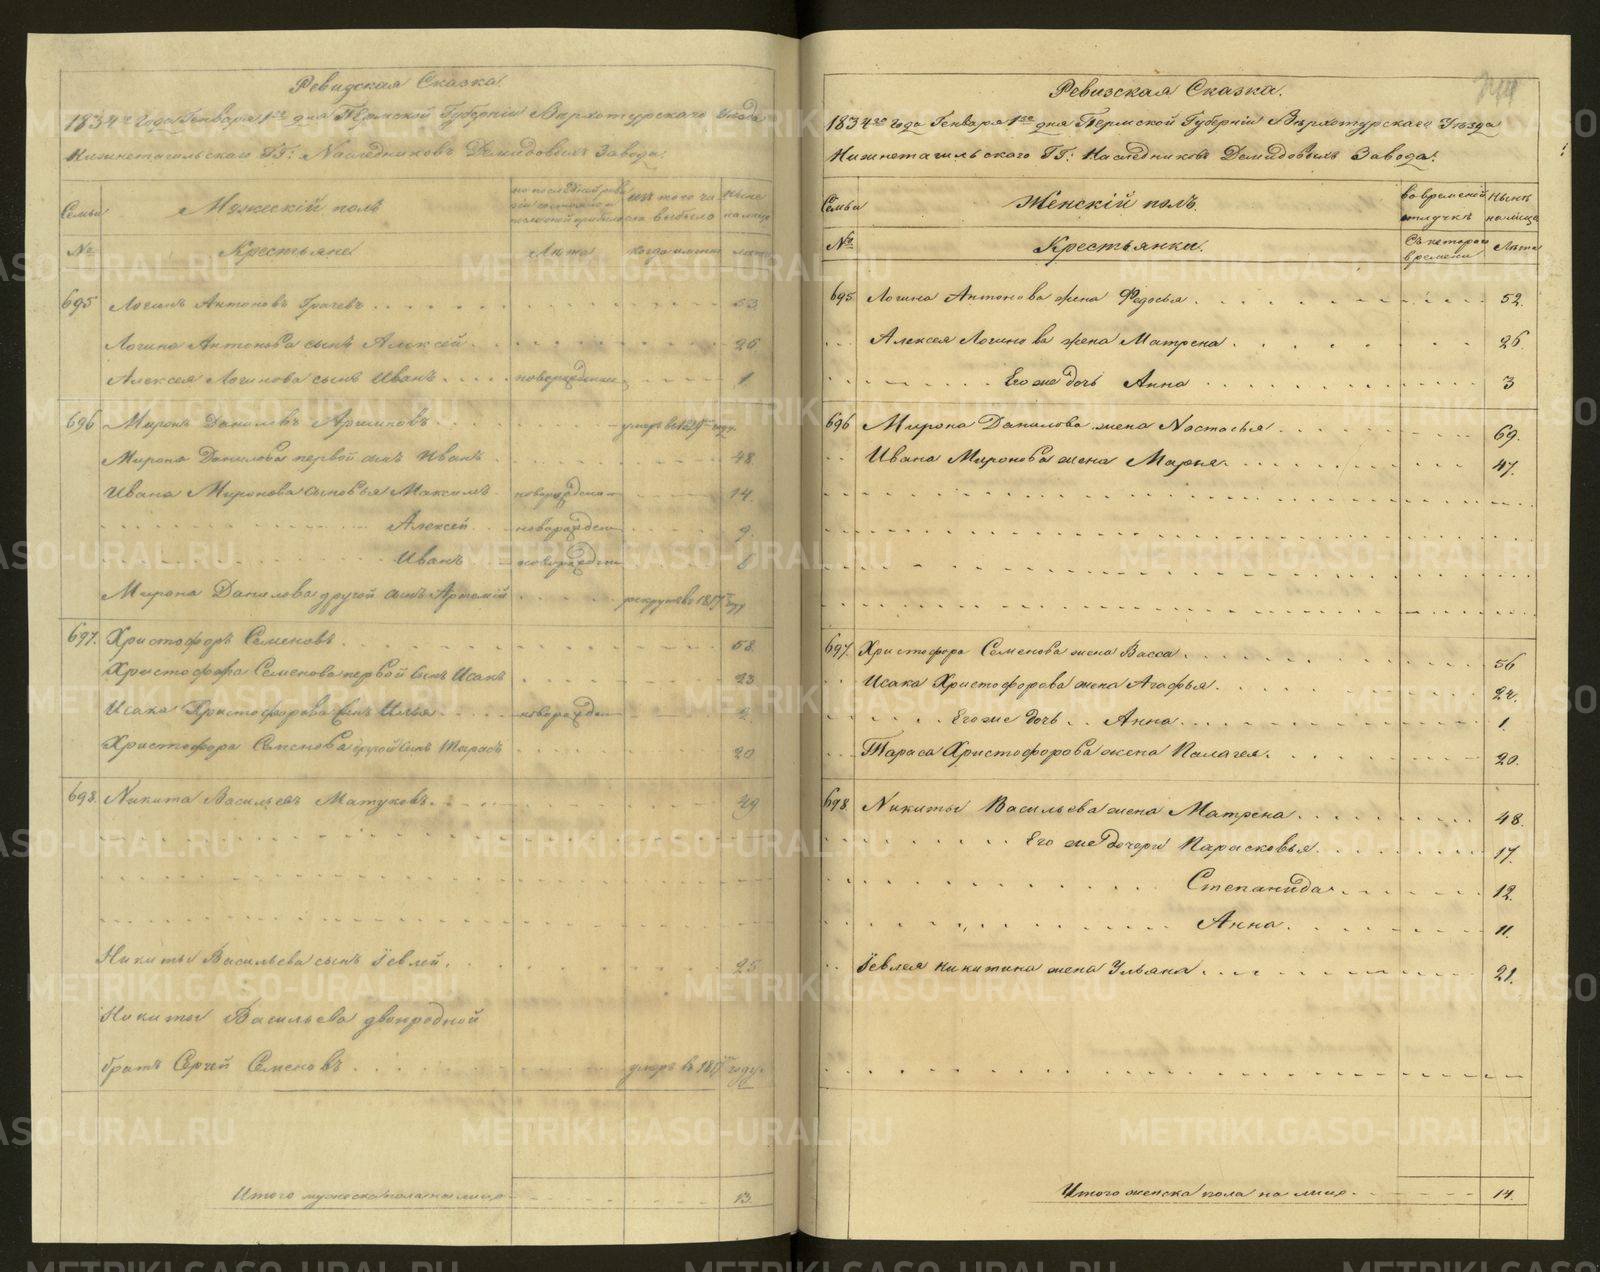 Ревизская Сказка.
1834го года Генваря 1го дня Пермской Губерніи Верхотурскаго Уѣзда
Нижнетагильскаго ГГ: Наследниковъ Демидовыхъ Завода.
Семьи Мужескій полъ изъ того числа выбыло ныне на лицо
№ Крестьяне Лѣта когда имянно лѣта
695 Логинъ Антоновъ Грачевъ 53.
Логина Антонова сынъ Алексей 26
Алексея Логинова сынъ Иванъ новорожден 1
696 Миронъ Даниловъ умеръ в году
Мирона Данилова первой сынъ Иванъ 48.
Ивана Миронова сыновья Максимъ новорожден 14.
Алексей новорожден 9.
Иванъ новорожден
Мирона Данилова другой сынъ Артемій рекрутъ в 181 году
697. Христофоръ Семеновъ 58.
Христофора Семенова первой сынъ Исакъ 23
Исака Христофорова сынъ Илья новорожден
Христофора Семенова другой сынъ Тарасъ 20
698. Никита Васильевъ Матуковъ 49
Никиты Васильева сынъ Іевлей 25
Никиты Васильева двоюродной
братъ Сергей Семеновъ умеръ в 181 году
Итого мужеска пола на лицо 13.
Ревизская Сказка.
1834го года Генваря 1го дня Пермской Губерніи Верхотурскаго Уѣзда
Нижнетагильскаго ГГ: Наследниковъ Демидовыхъ Завода.
Семьи Женскій полъ во временной отлучкѣ нынѣ на лицо
№ Крестьянки. Съ котораго времени Лѣта
695 Логина Антонова жена Федосья 52.
Алексея Логинова жена Матрена 26.
Его же дочь Анна 3
696 Мирона Данилова жена Настасья 69.
Ивана Миронова жена Марья 47.
697. Христофора Семенова жена Васса 56
Исака Христофорова жена Агафья 24.
Его же дочь Анна 1.
Тараса Христофорова жена Палагея. 20.
698 Никиты Васильева жена Матрена 48.
Его же дочери Парасковья 17.
Степанида 12.
Анна 11.
Іевлея Никитина жена Ульяна 21.
Итого женска пола на лицо 14.
METRIKI.GASO-URAL.RU